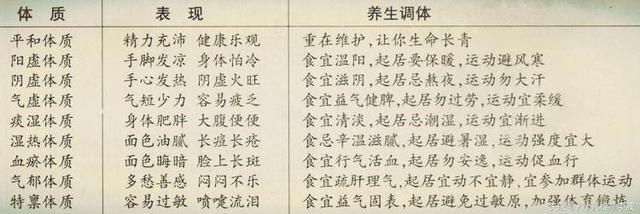 体质 表现 养生调体
平和体质 精力充沛 健康乐观 重在维护,让你生命长青
阳虚体质 手脚发凉 身体怕冷 食宜温阳,起居要保暖,运动避风寒
阴虚体质 手心发热 阴虚火旺 食宜滋阴,起居忌熬夜,运动勿大汗
气虚体质 气短少力 容易疲乏 食宜益气健脾,起居勿过劳,运动宜柔缓
痰湿体质 身体肥胖 大腹便便 食宜清淡,起居忌潮湿,运动宜渐进
湿热体质 面色油腻 长痘长疮 食忌辛温滋腻,起居避暑湿,运动强度宜大
血瘀体质 面色晦暗 脸上长斑 食宜行气活血,起居勿安逸,运动促血行
气郁体质 多愁善感 闷闷不乐 食宜疏肝理气,起居宜动不宜静,宜参加群体运动
特禀体质 容易过敏 喷嚏流泪 食宜益气固表,起居避免过敏原,加强体育锻炼